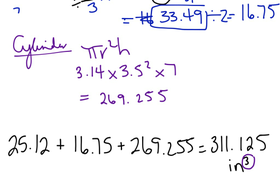 ÷3
= 33.49 ÷2 = 16.75
Cylinder πr²h
3.14 x 3.5² x 7
= 269.255
25.12 + 16.75 + 269.255 = 311.125
in³